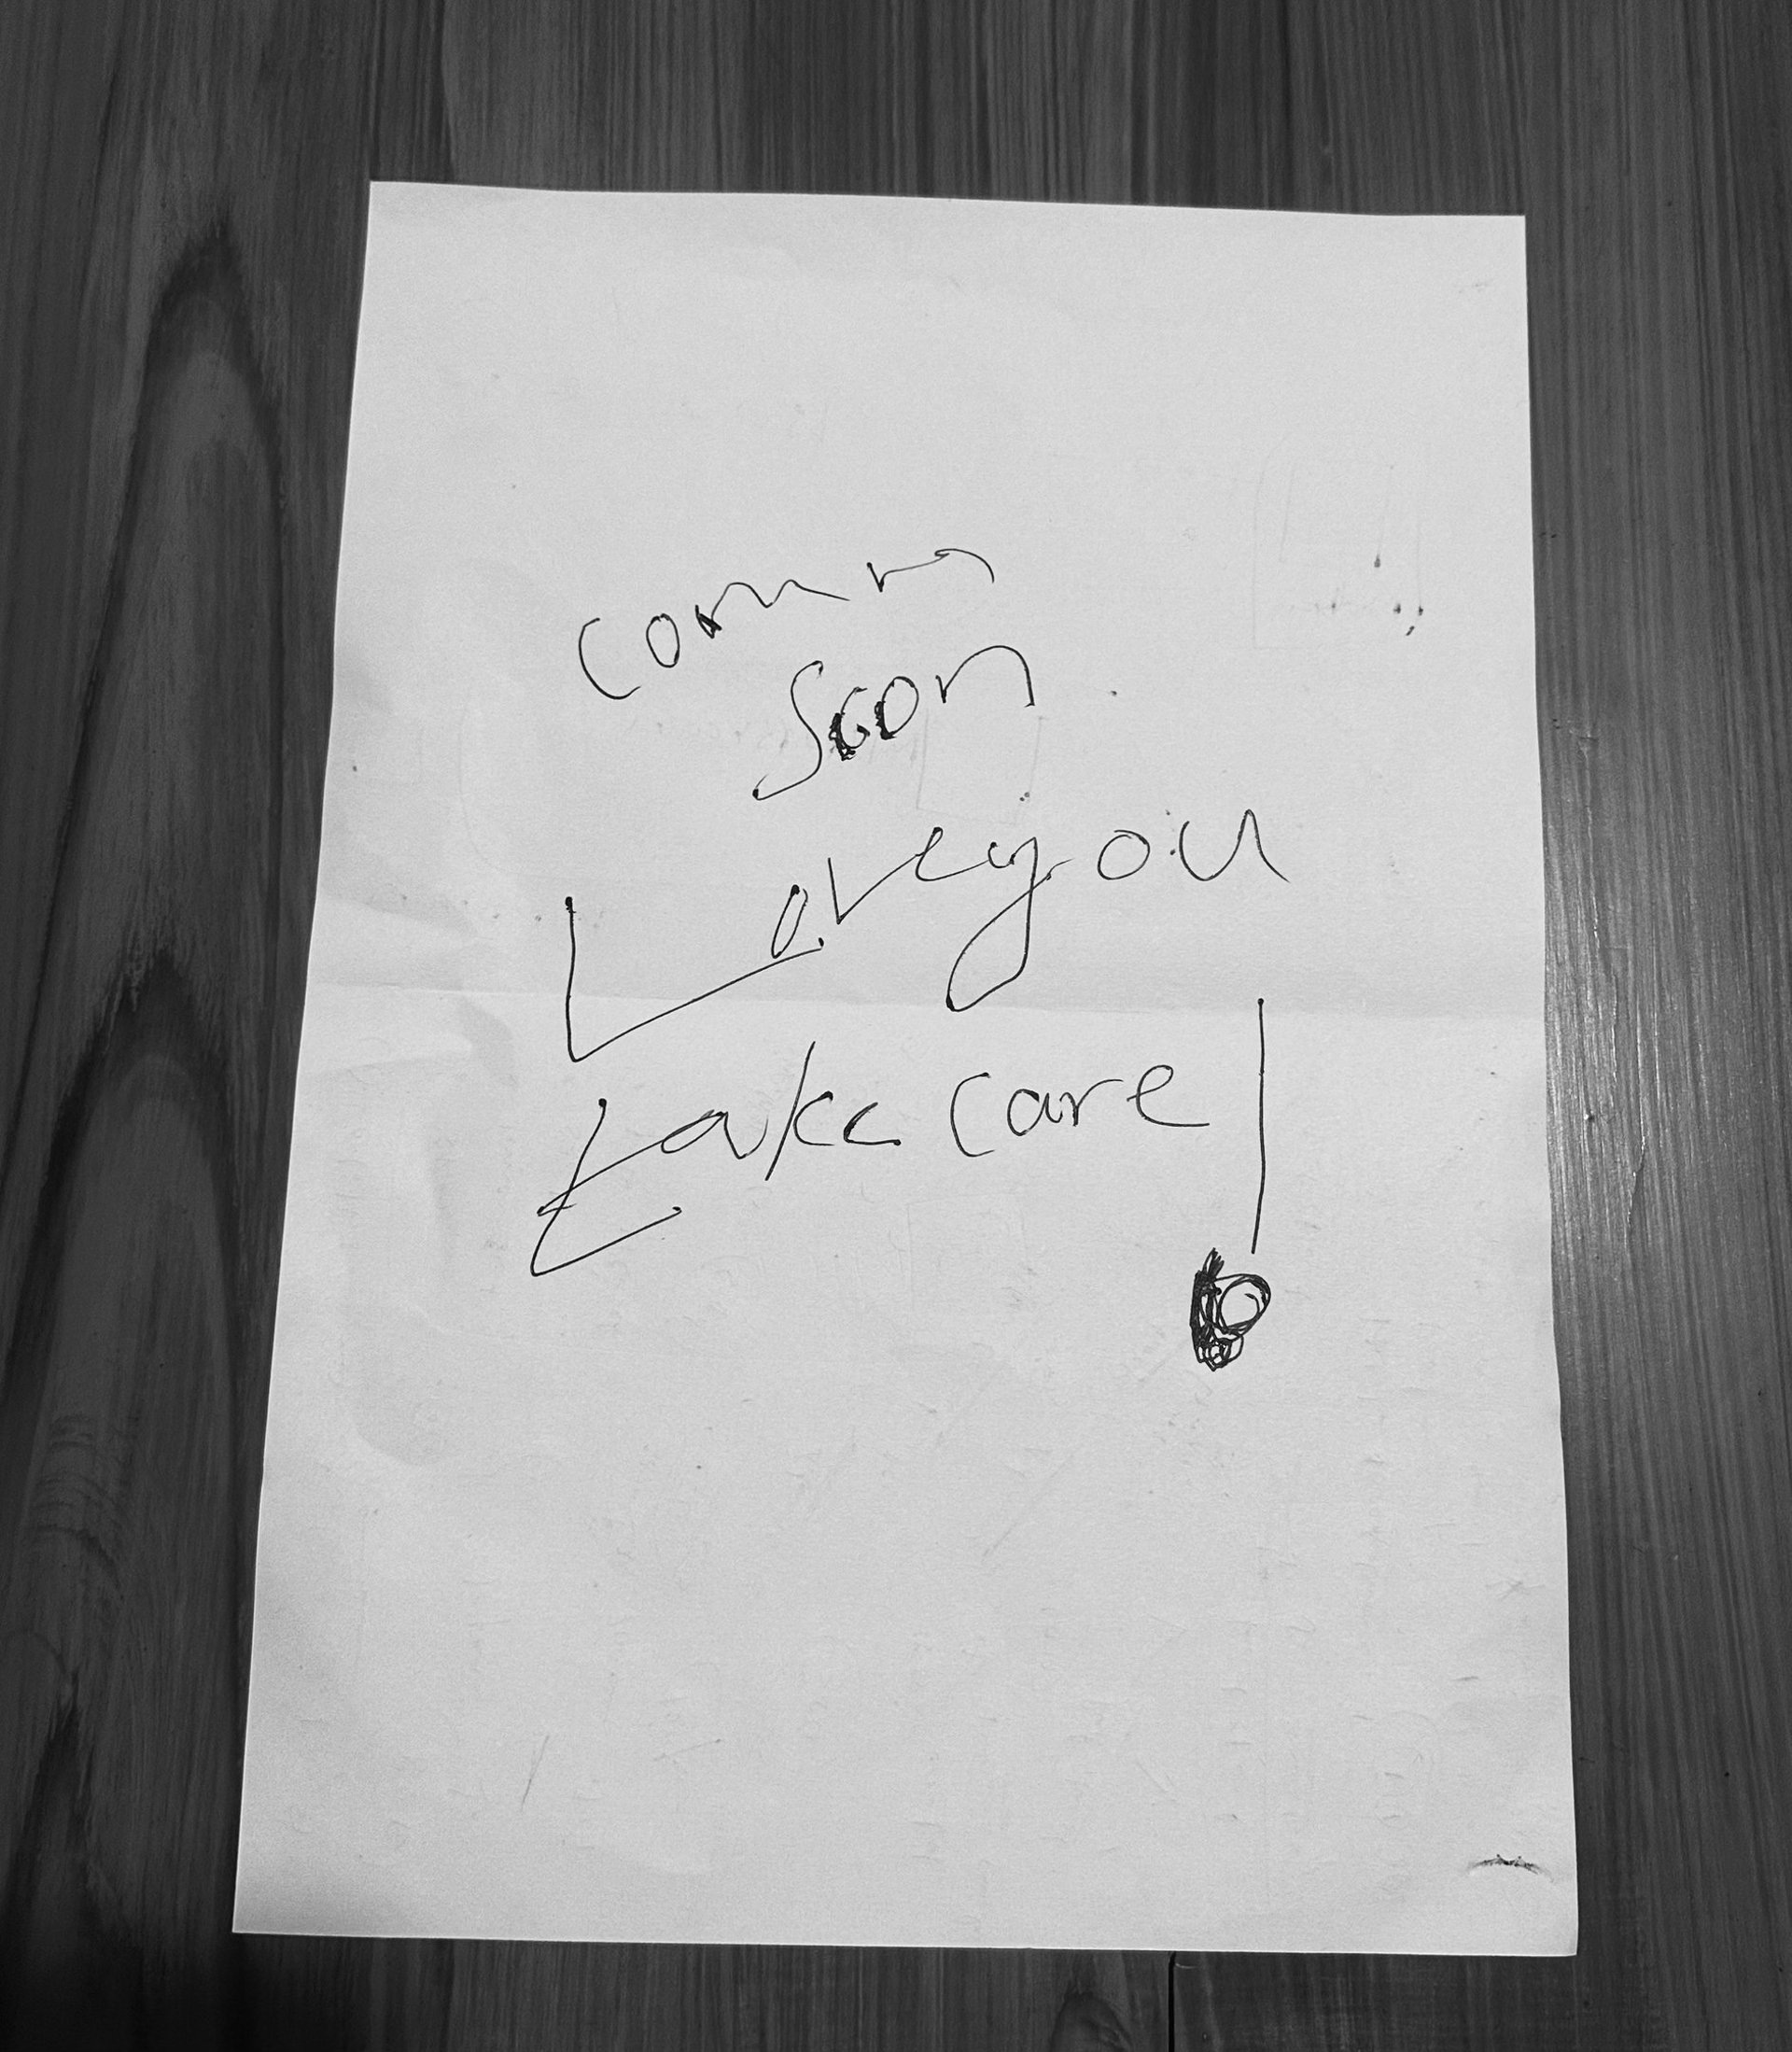 Soon
Love you
take care !